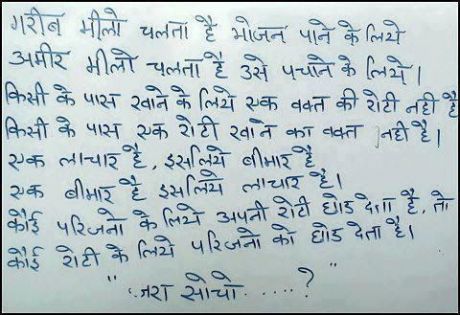 गरीब मीलो चलता है भोजन पाने के लिये
अमीर मीलो चलता है उसे पचाने के लिये।
किसी के पास खाने के लिये एक वक्त की रोटी नही है
किसी के पास एक रोटी खाने का वक्त नही है।
एक लाचार है, इसलिये बीमार है
एक बीमार है इसलिये लाचार है।
कोई परिजनो के लिये अपनी रोटी छोड देता है, तो
कोई रोटी के लिये परिजनो को छोड देता है।
" जरा सोचो.....? "